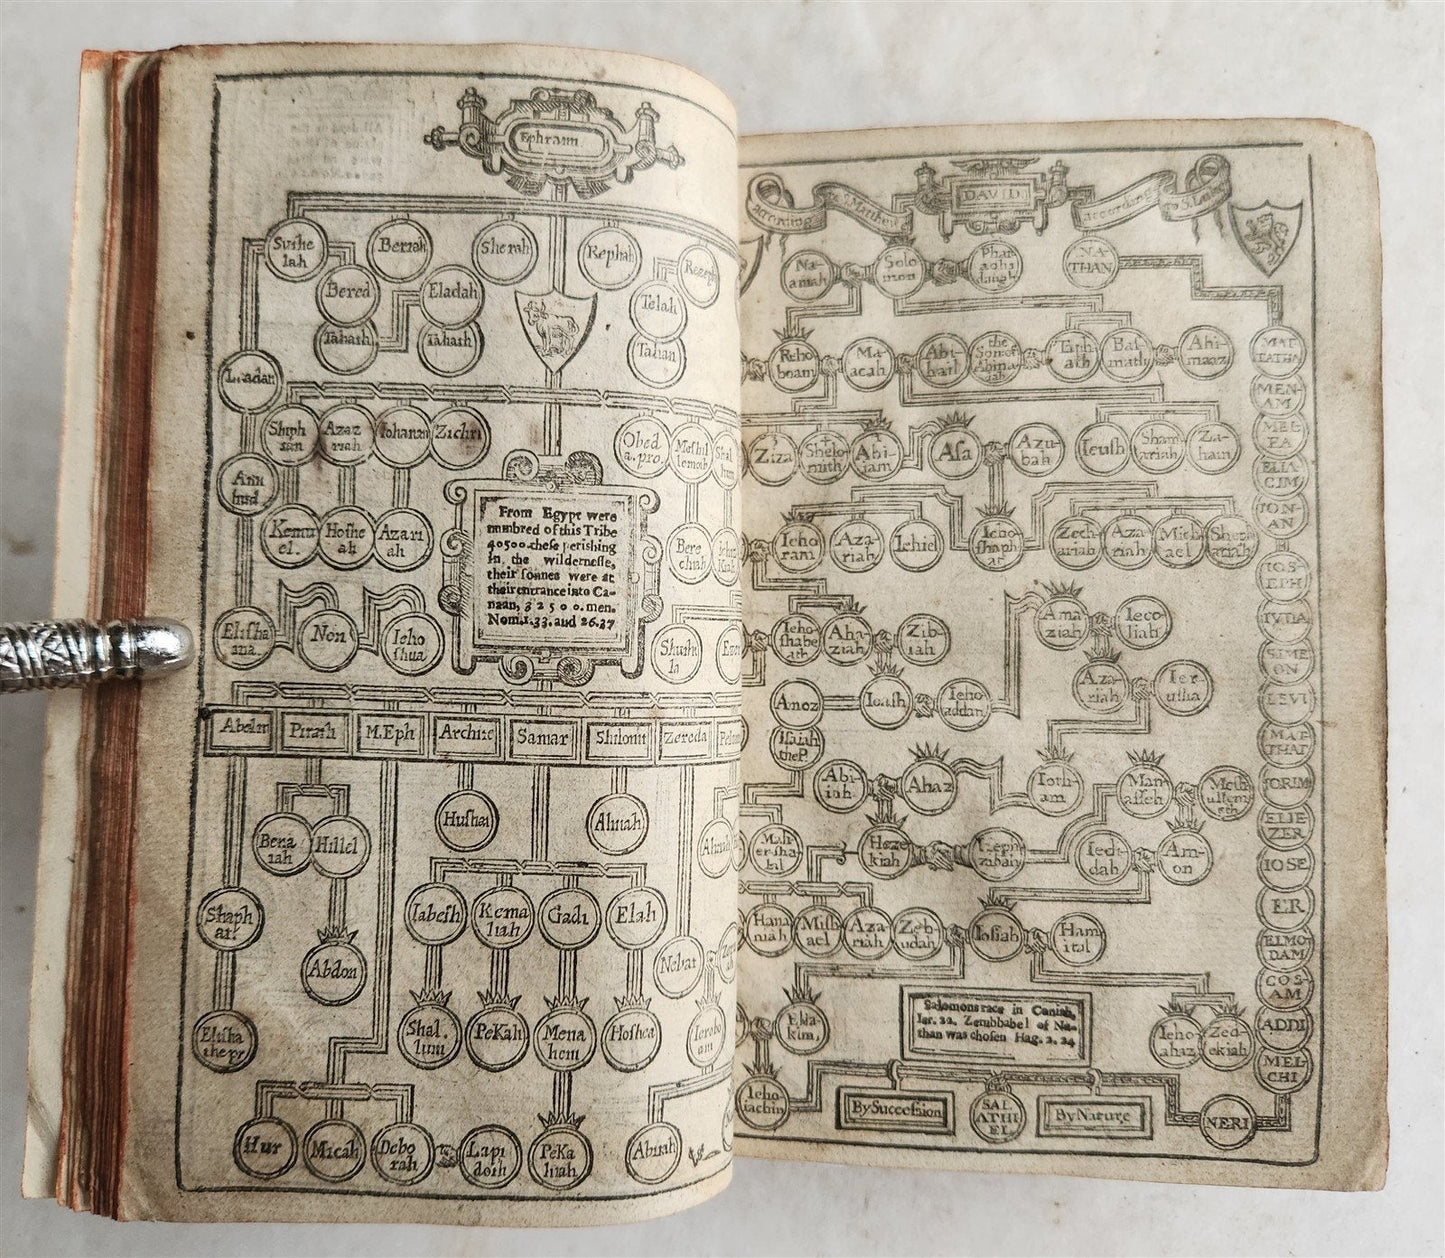 Ephraim
Suthe
lah
Beriah
Sherah
Rephah
Rezeph
Bered
Eladah
Telah
Tahath
Tahath
Tahan
Laadan
Shiph
tan
Azaz
riah
Iohanan
Zichri
Obed
a.pro.
Meshil
lemoth
Ami
hud
Kemu
el.
Hoshe
ah
Azari
ah
Bere
chiah
From Egypt were
numbred of this Tribe
40500.these perishing
in the wildernesse,
their sonnes were at
their entrance into Ca-
naan, 32500. men.
Nom.1.33. and 26.37
Elisha
ma.
Non
Ieho
shua
Shuthe
la
Pirath
M.Eph
Archite
Samar
Shilonit
Zereda
Hushai
Ahijah
Bena
iah
Hillel
Shaph
at.
Abdon
Iabesh
Kema
liah
Gadi
Elah
Nebat
Elisha
the pr
Shal.
lum
PeKah
Mena
hem
Hoshea
Ierobo
am
Hur
Micah
Debo
rah
Lapi
doth
PeKa
hiah
Abijah
according
to S.Matthew
DAVID
according
to S.Luke
Na-
amah
Solo
mon
Phar
aohs
daught
NA-
THAN
Reho
boam
Ma-
acah
Abi-
hail
the
Son of
Abina
dab
Taph
ath
Bas
math
Ahi-
maaz
MAT
TATHA
MEN-
AM
MEL-
EA
ELIA-
CIM
ION-
AN
IOS-
EPH
IVDA
SIME
ON
LEVI
MAT
THAT
IORIM
ELIE
ZER
IOSE
ER
ELMO
DAM
COS-
AM
ADDI
MEL-
CHI
Ziza
Shelo
mith
Abi-
jam
Asa
Azu-
bah
Ieush
Sham
ariah
Za-
ham
Ieho
ram
Aza-
riah
Iehiel
Ieho
shaph
at
Zech-
ariah
Aza-
riah
Mich
ael
Sheph
atiah
Ieho-
shabe
ath
Aha-
ziah
Zib-
iah
Ama
ziah
Ieco-
liah
Amoz
Ioash
Ieho-
addan
Aza-
riah
Ier-
usha
Isaiah
the P.
Abi-
iah
Ahaz
Ioth-
am
Man-
asseh
Mesh
ullem
eth
Heze
kiah
Heph
zibah
Iedi-
dah
Am-
on
Hana
niah
Mish
ael
Aza-
riah
Zeb-
udah
Iosiah
Ham
ital
Elia-
kim
Salomons race in Coniah,
Ier. 22. Zerubbabel of Na-
than was chosen Hag. 2. 24
Ieho
ahaz
Zed-
ekiah
Ieho-
iachin
By Succession
SAL
ATHI
EL
By Nature
NERI